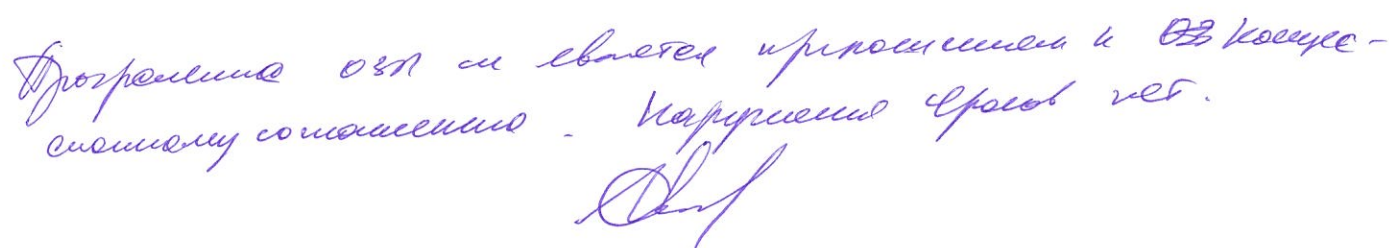 Программа ОЗП не является приложением к концес-
сионному соглашению. Нарушения сроков нет.